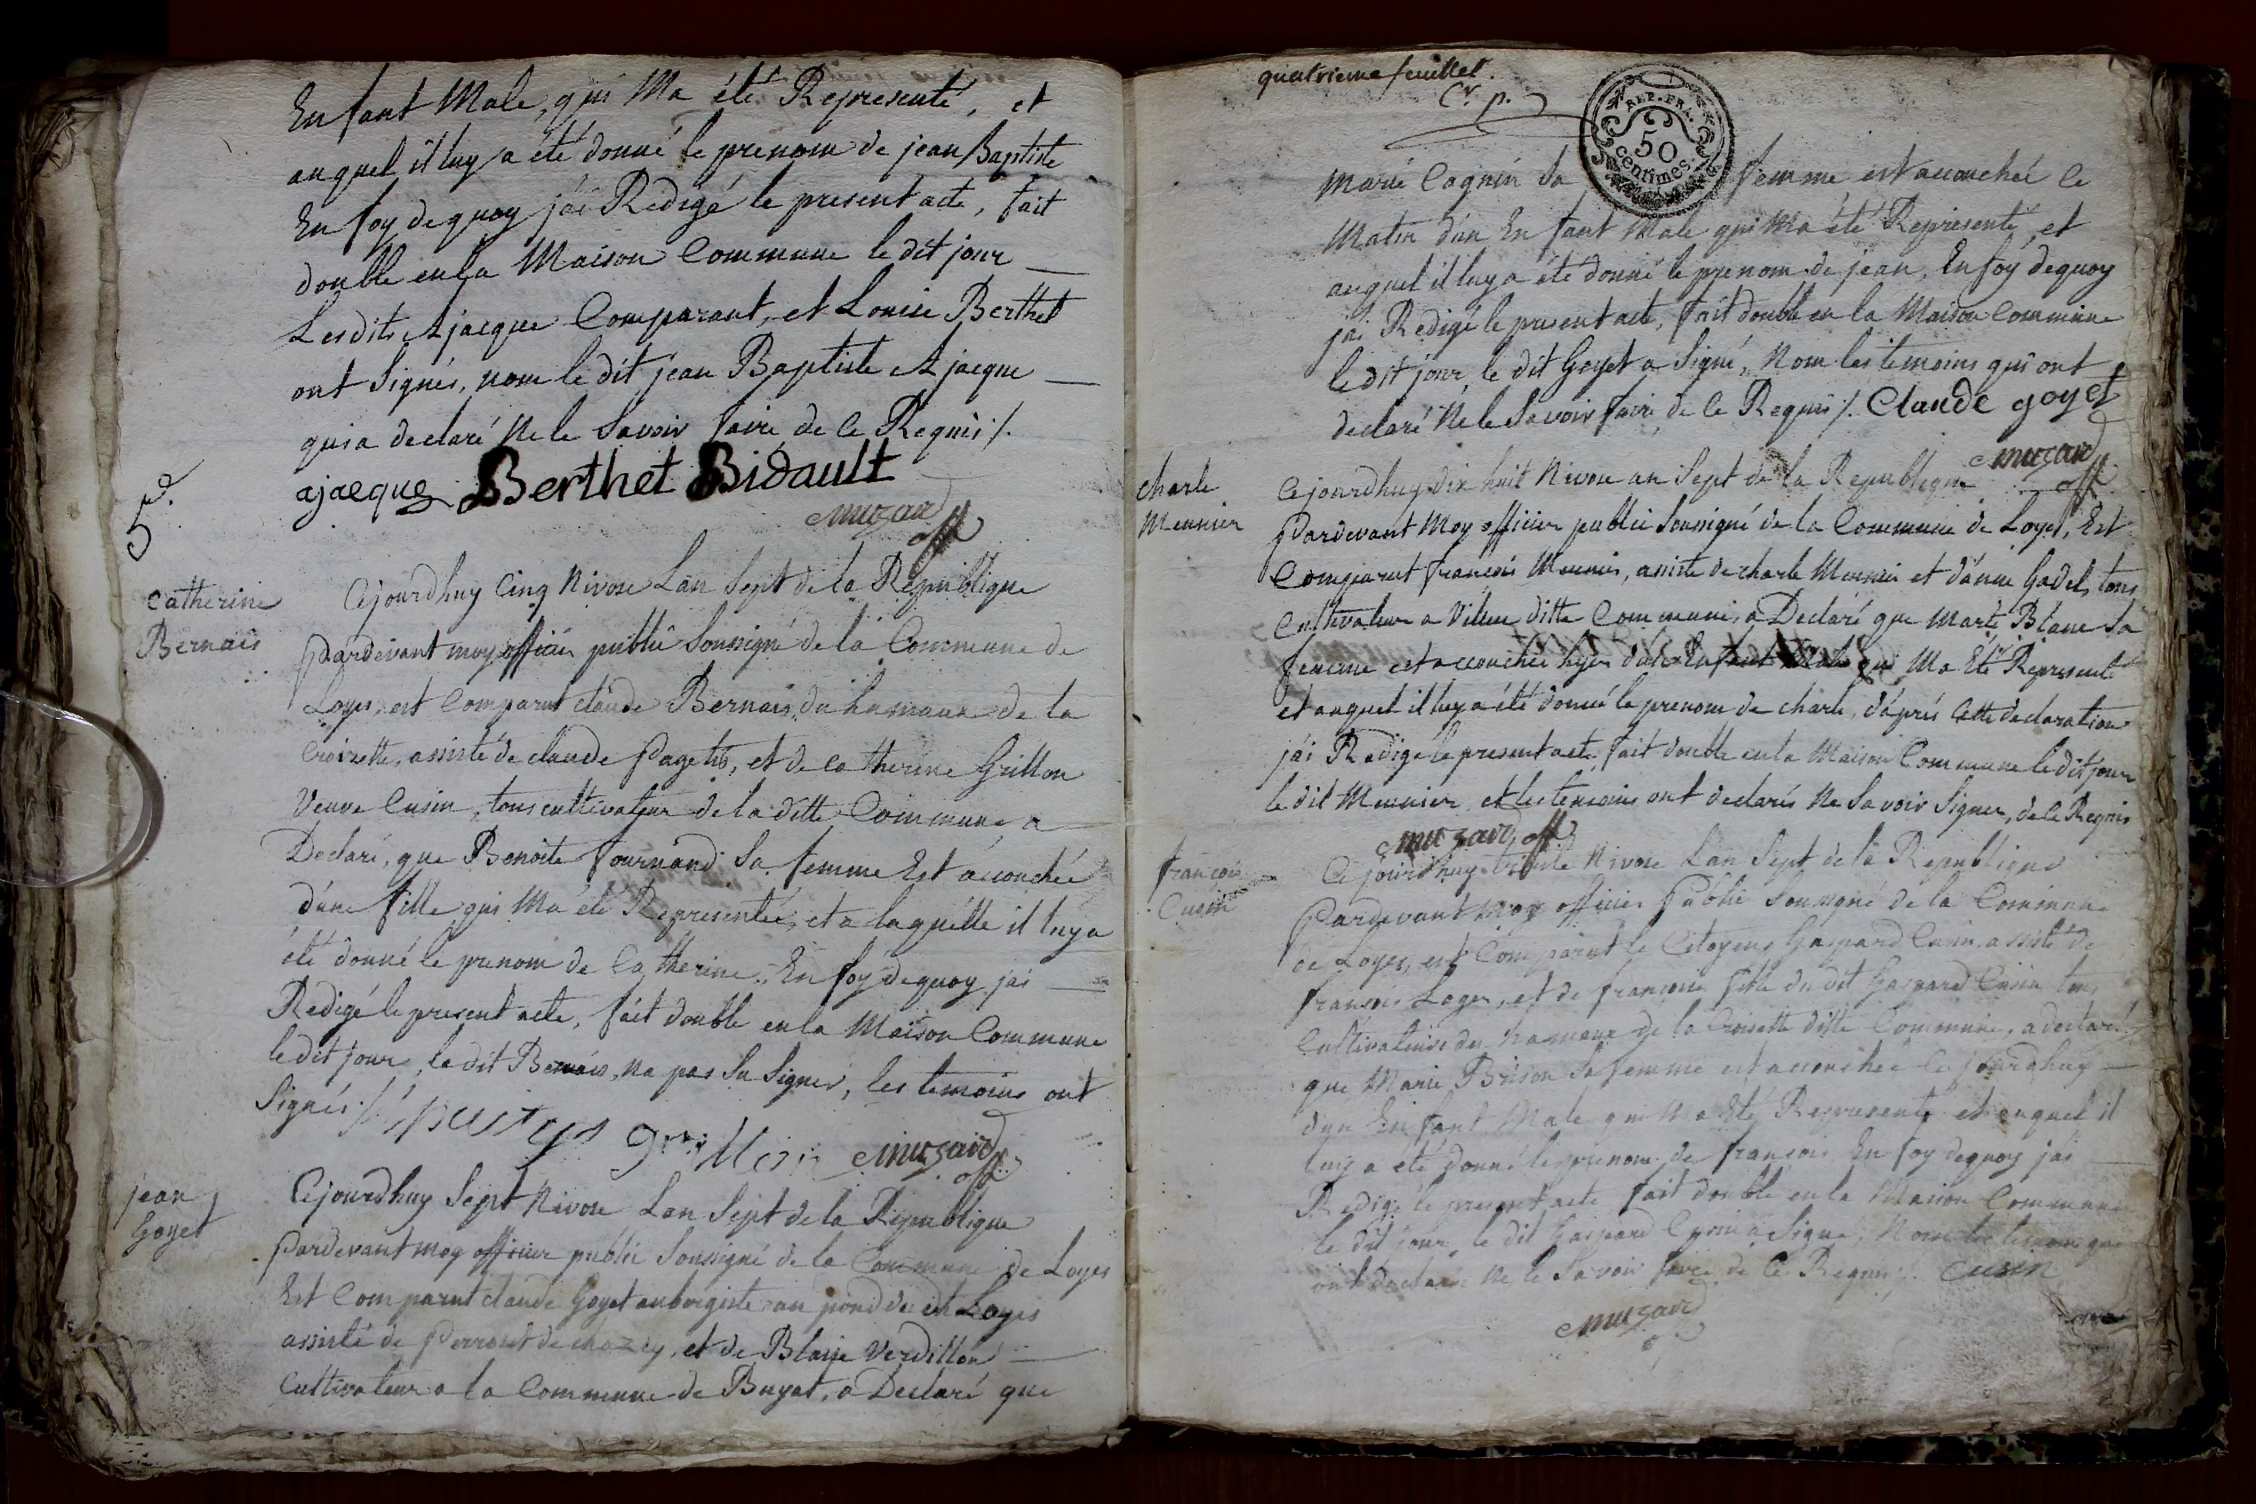 Enfant Male, qui Ma été Representé, et
auquel il luy a été donné le prenom de jean Baptiste
En foy dequoy j'ai Redigé le present acte, fait
double en la Maison Commune le dit jour
Lesdits Ajacque Comparant, et Louise Berthet
ont Signés, nom le dit jean Baptiste Ajacque
qui a declaré Ne le Savoir faire de ce Requis /.
ajacque Berthet Bidault
muzard
off
5
Catherine
Bernais
Cejourdhuy Cinq Nivose Lan Sept de la Republique
Pardevant moy officier publié Soussigné de la Commune de
Loyes, est Comparut claude Bernais, du hamaux de la
Croizette, assisté de claude Pagets, et de catherine Grillon
Veuve Cusin, tous cultivateur de la ditte Commune a
Declaré, que Benoite fournand Sa femme Est accouchée
d'une fille qui Ma été Representée, et a laquelle il luy a
été donné le prenom de Catherine, En foy dequoy jai
Redigé le present acte, fait double en la Maison Commune
le dit jour, le dit Bernais, na pas Su Signer, les temoins ont
Signés /.
muzard
off
jean
Goyet
Cejourdhuy Sept Nivose Lan Sept de la Republique
Pardevant moy officier publié Soussigné de la Commune de Loyes
Est Comparut claude Goyet aubergiste au pond de dit Loyes
assisté de Perroset de chazey, et de Blaise Verdillon
Cultivateur a la Commune de Buyat, a Declaré que
quatrieme feuillet.
REP. FRA.
50
centimes.
Marie Cagnin Sa femme est accouchée ce
Matin d'un Enfant Male qui Ma été Representé, et
auquel il luy a été donné le prenom de jean, En foy dequoy
jai Redigé le present acte, fait double en la Maison Commune
le dit jour, le dit Goyet a Signé, Nom les temoins qui ont
declaré Ne le Savoir faire de Ce Requis /. Claude goyet
muzard
off
charle
Meunier
Cejourdhuy dix huit Nivose an Sept de la Republique
Pardevant Moy officier publié Soussigné de la Commune de Loyes, Est
Comparut françois Meunier, assisté de charle Meunier et d'anne Gadel, tous
Cultivateur a Villieu ditte Commune, a Declaré que Marie Blanc Sa
femme est accouchée hyer d'un Enfant Male qui Ma Eté Representé
et auquel il luy a été donné le prenom de charle, d'après Cette declaration
j'ai Redigé le present acte, fait double en la Maison Commune le dit jour
le dit Meunier, et les temoins ont declarés Ne Savoir Signer, de Ce Requis
muzard off
françois
Cusin
Cejourdhuy trente Nivose Lan Sept de la Republique
Pardevant Moy officier Publié Soussigné de la Commune
de Loyes, est Comparut le Citoyens Gaspard Cusin, assisté de
françois Loger, et de françoise fille du dit Gaspard Cusin tous
Cultivateurs du hamaux de la Croisette ditte Commune, a declaré
que Marie Brison Sa femme est accouchée Cejourdhuy
d'un Enfant Male qui Ma Eté Representé et auquel il
luy a été donné le prenom de françois En foy dequoy jai
Redigé le present acte fait double en la Maison Commune
le dit jour, le dit Gaspard Cusin a Signé, Nom les temoins qui
ont declaré Ne le Savoir faire de Ce Requis /. cusin
muzard